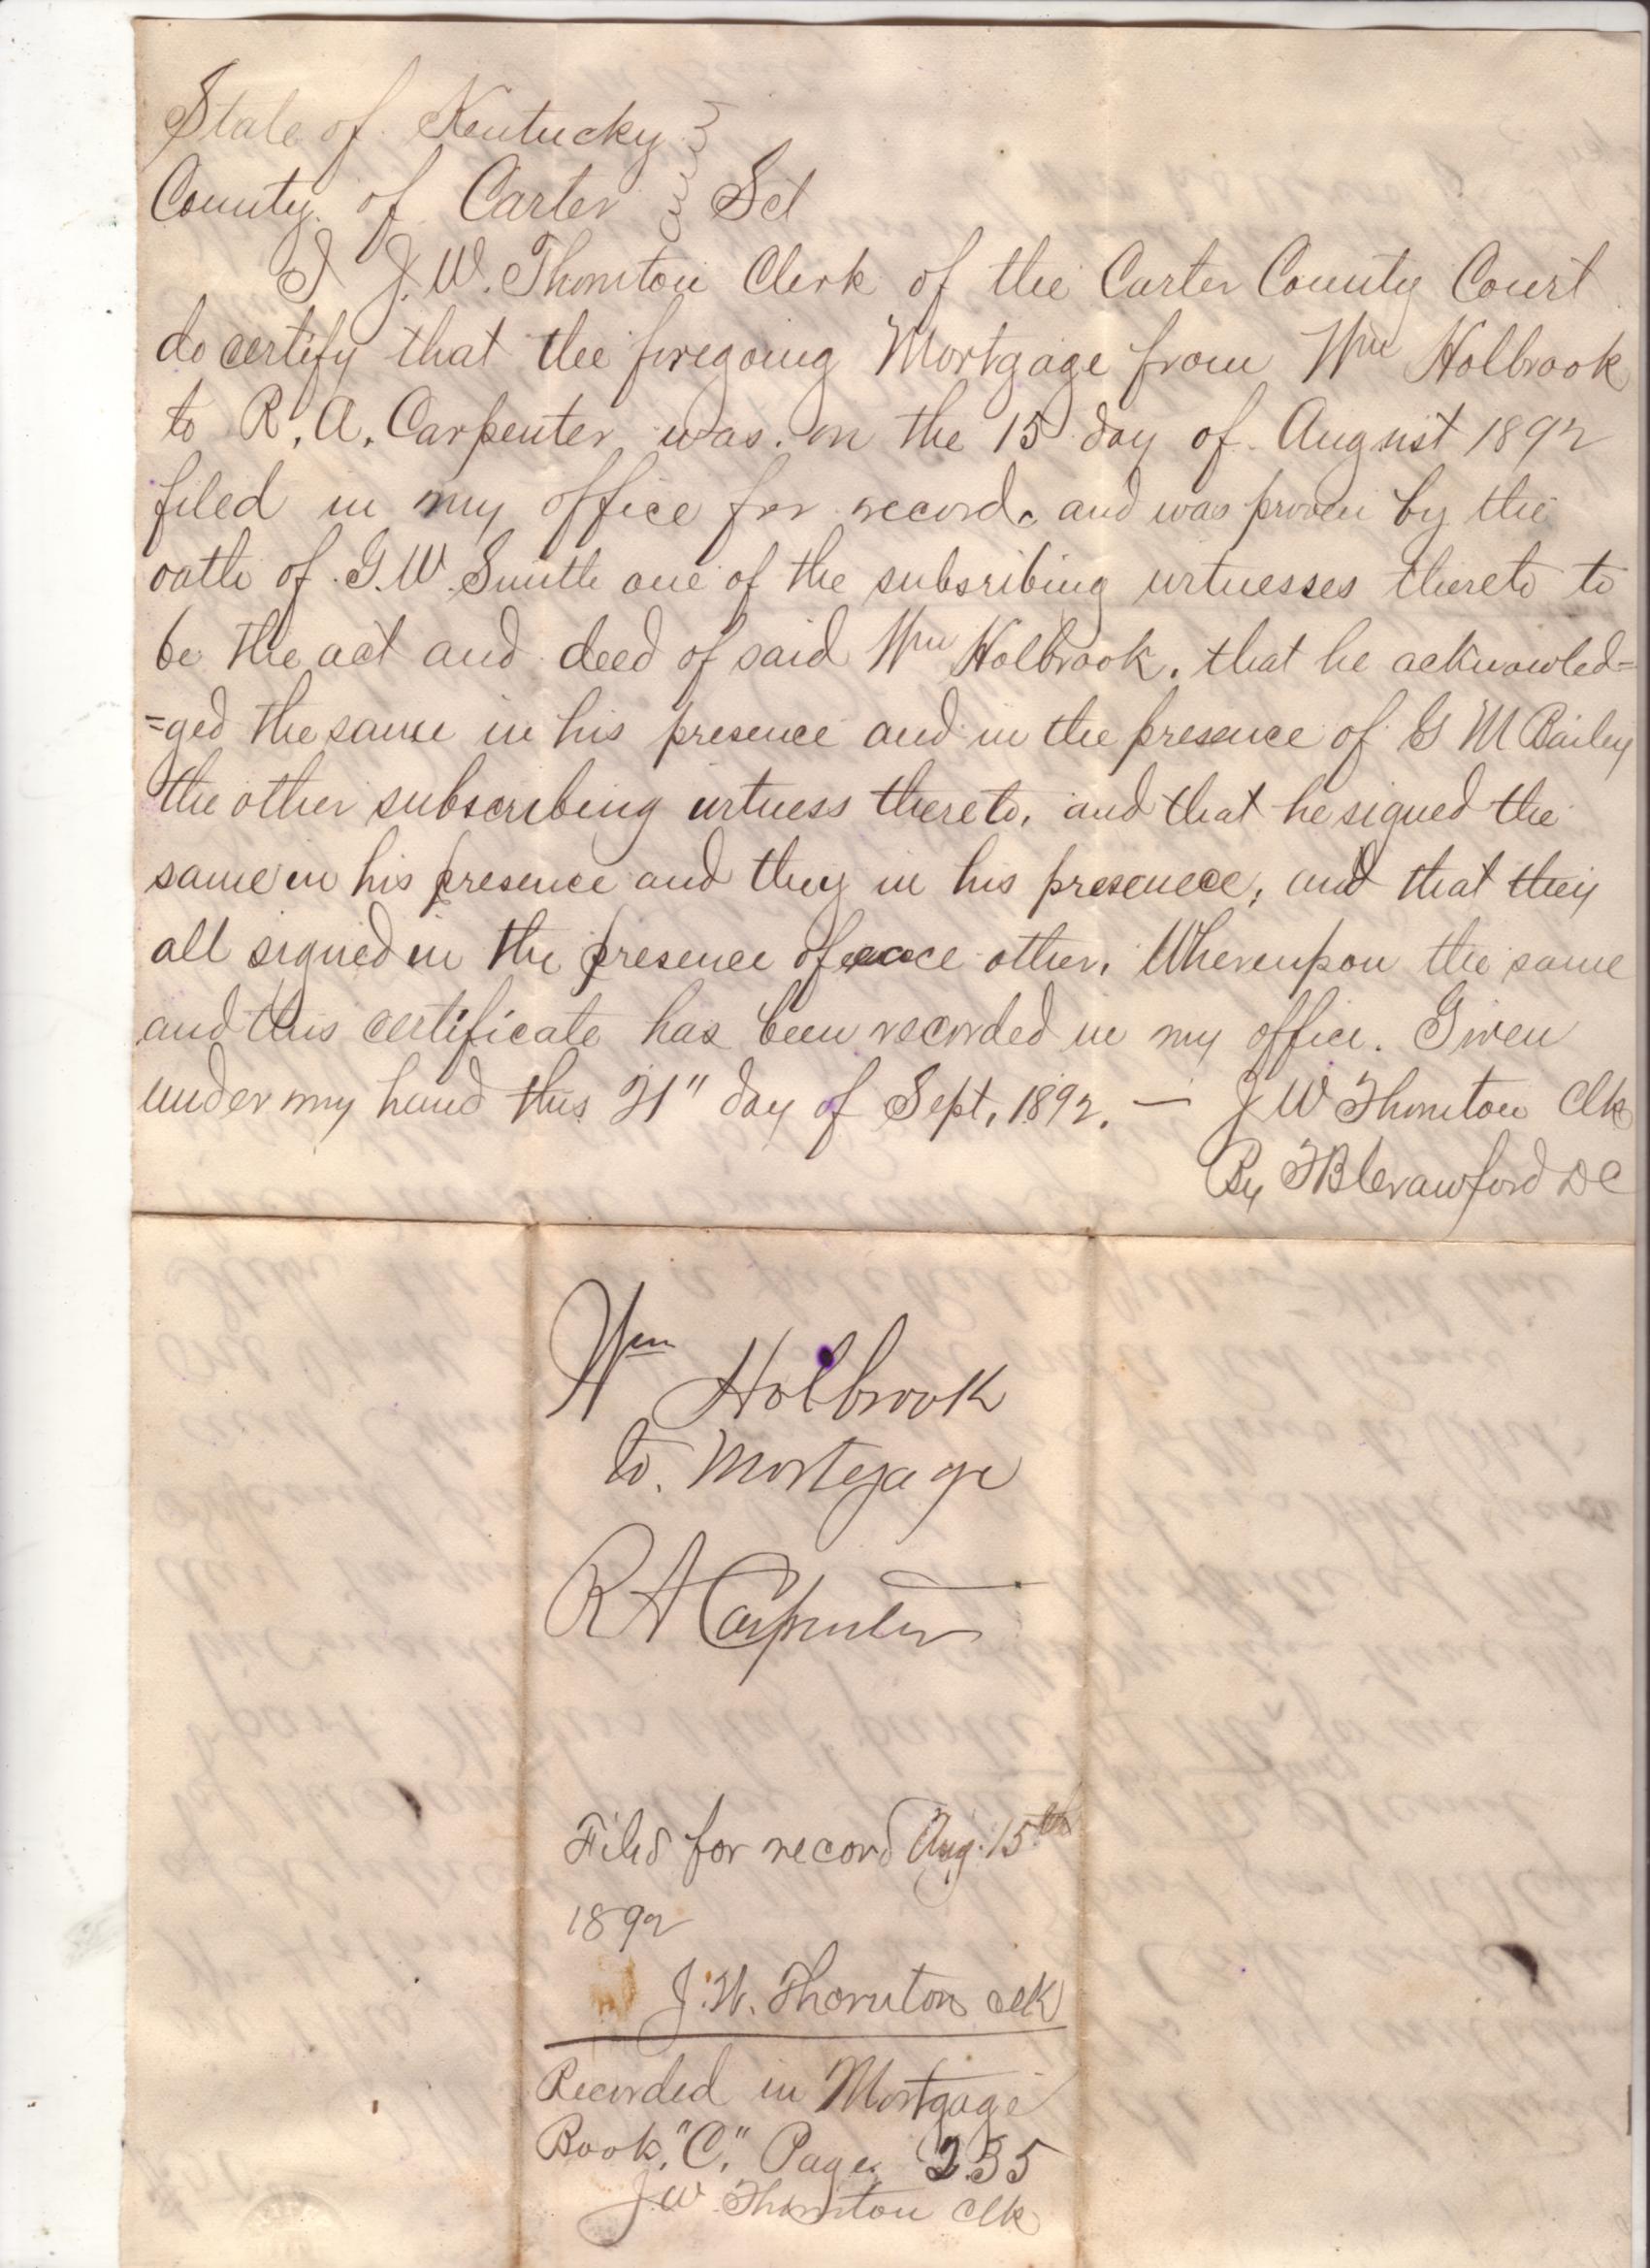 State of Kentucky
County of Carter } Sct
I J. W. Thornton Clerk of the Carter County Court
do certify that the foregoing Mortgage from Wm Holbrook
to R. A. Carpenter was on the 15 day of August 1892
filed in my office for record. and was proven by the
oath of G. W. Smith one of the subsribing witnesses thereto to
be the act and deed of said Wm Holbrook, that he acknowled=
=ged the same in his presence and in the presence of G M Bailey
the other subscribing witness thereto, and that he signed the
same in his presence and they in his presence, and that they
all signed in the presence of other, Whereupon the same
and this certificate has been recorded in my office. Given
under my hand this 21" day of Sept, 1892. — J W Thornton Clk
By Crawford DC
Wm Holbrook
to. Mortgage
R A Carpenter
Filed for record Aug. 15th
1892
J. W. Thornton clk
Recorded in Mortgage
Book "C," Page 235
J W Thornton Clk